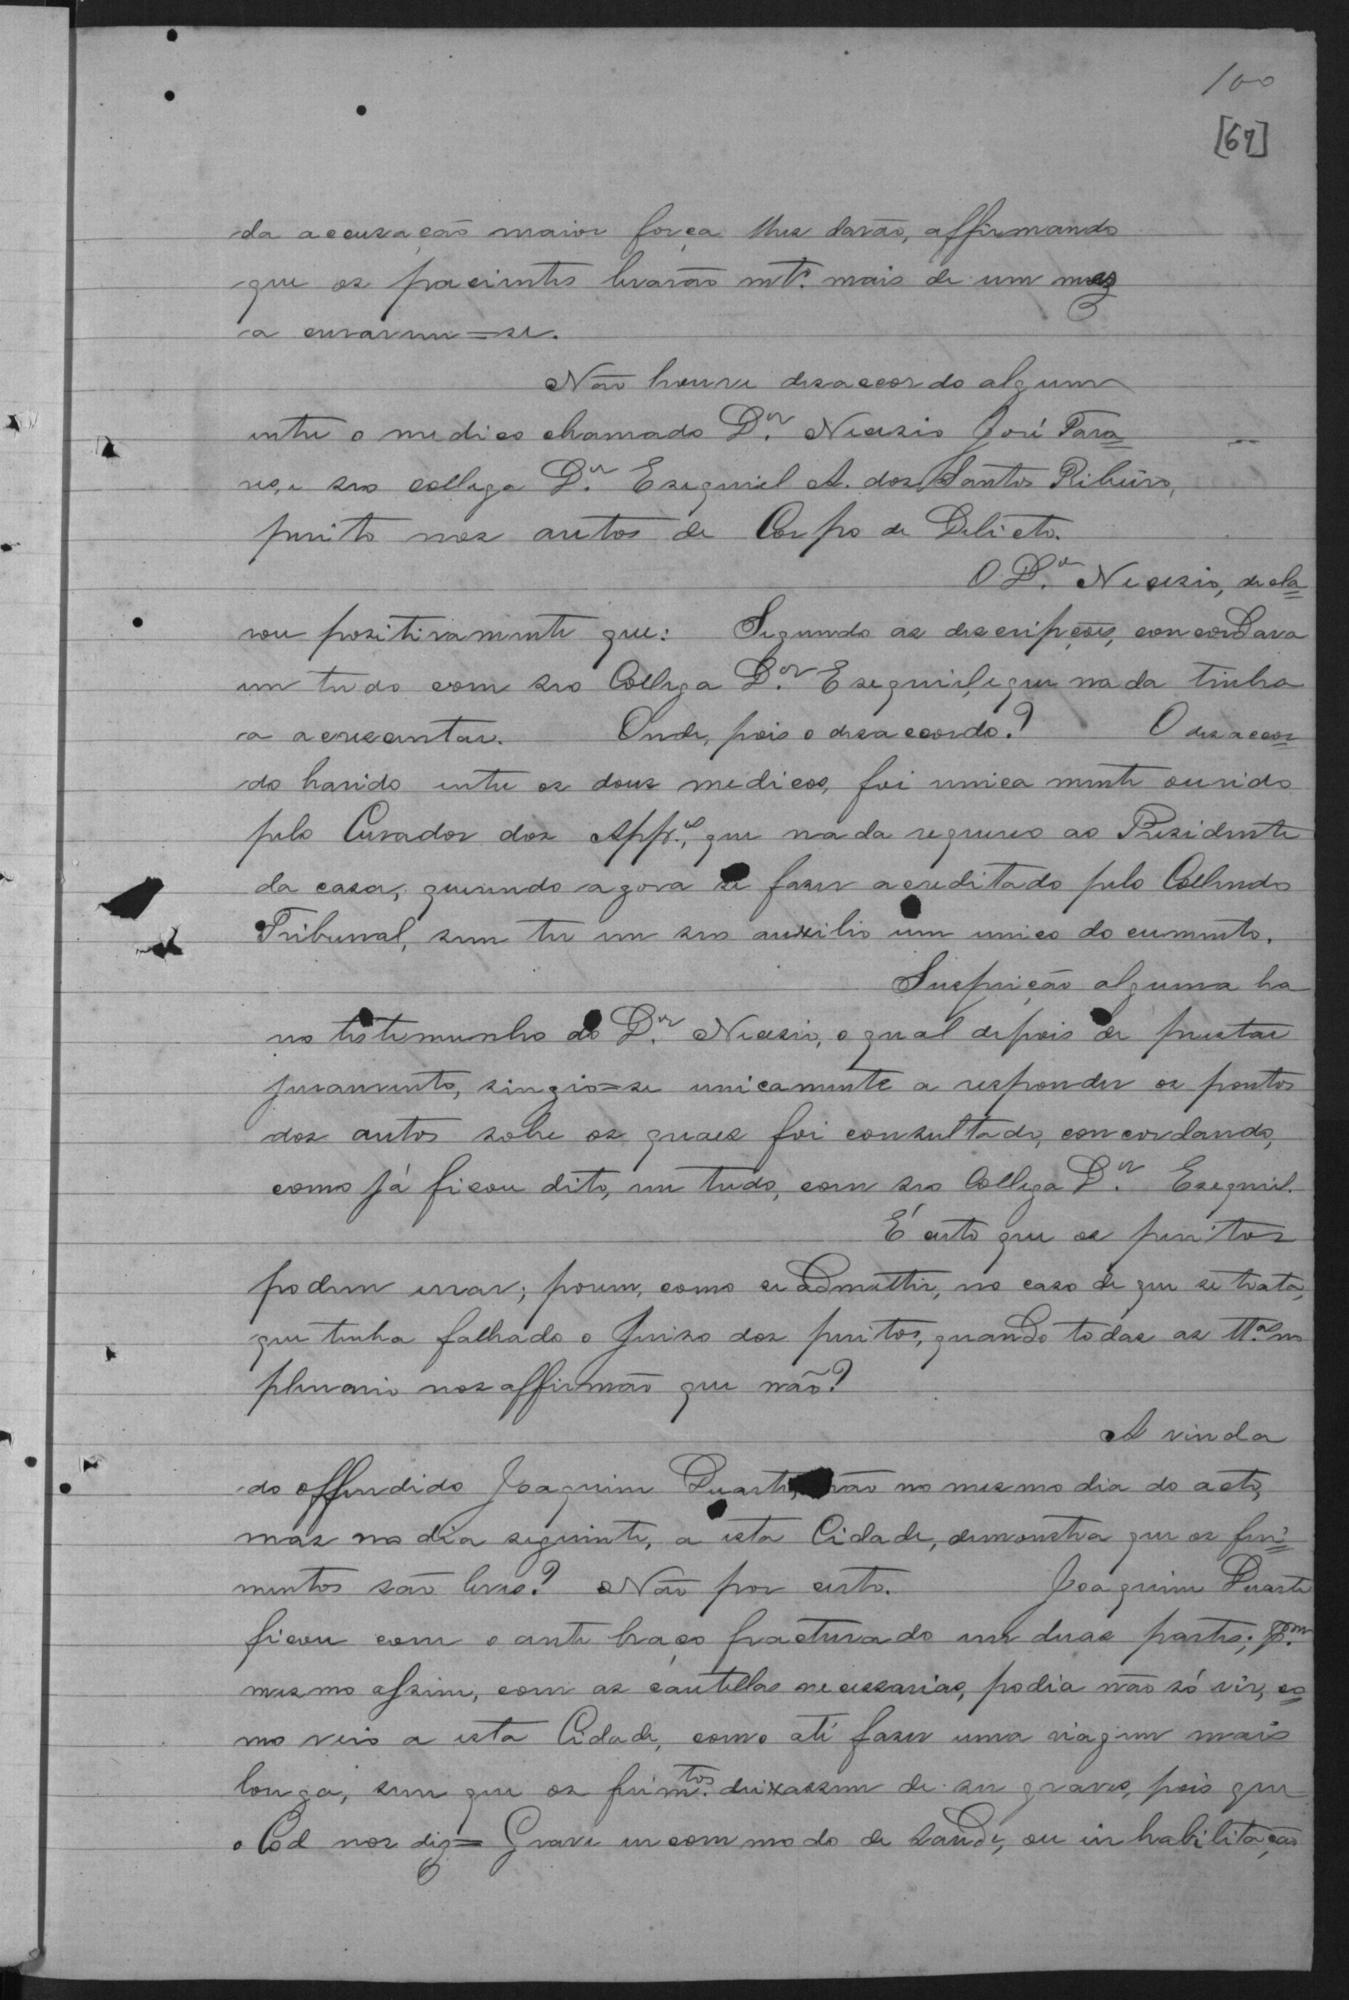 100
[67]
da accusação maior força lhes darão, affirmando
que os pacientes levarão mto. mais de um mez
a curarem=se.
Não houve desaccordo algum
entre o medico chamado Dor. Nicesio José Tava=
res, e seo collega Dor. Esequiel A. dos Santos Ribeiro,
perito nos autos de Corpo de Delicto.
O Dor. Nicesio, decla=
rou positivamente que: Segundo as descripções, concordava
em tudo com seo Collega Dor. Esequiel, e que nada tinha
a acrescentar. Onde, pois o desaccordo? O desaccor=
do havido entre os dous medicos, foi unicamente ouvido
pelo Curador dos Appes., que nada requereo ao Presidente
da casa, querendo agora se fazer acreditado pelo Collendo
Tribunal, sem ter em seo auxilio um unico documento.
Suspeição alguma ha
no testemunho do Dor. Nicesio, o qual depois de prestar
juramento, singio=se unicamente a responder os pontos
dos autos sobre os quaes foi consultado, concordando,
como já ficou dito, em tudo, com seo Collega Dor. Esequiel.
É certo que os peritos
podem errar; porem, como se admittir, no caso de que se trata,
que tenha falhado o Juiso dos peritos, quando todas as ttas. no
plenario nos affirmão que não?
A vinda
do offendido Joaquim Duarte, não no mesmo dia do acto,
mas no dia seguinte, a esta Cidade, demonstra que os feri=
mentos são leves? Não por certo. Joaquim Duarte
ficou com o ante braço fracturado em duas partes; Pm.
mesmo assim, com as cautellas necessarias, podia não só vir, co=
mo veio a esta Cidade, como até fazer uma viagem mais
longa, sem que os ferimtos. deixassem de ser graves, pois que
o Cod nos diz= Grave incommodo de saude, ou inhabilitação